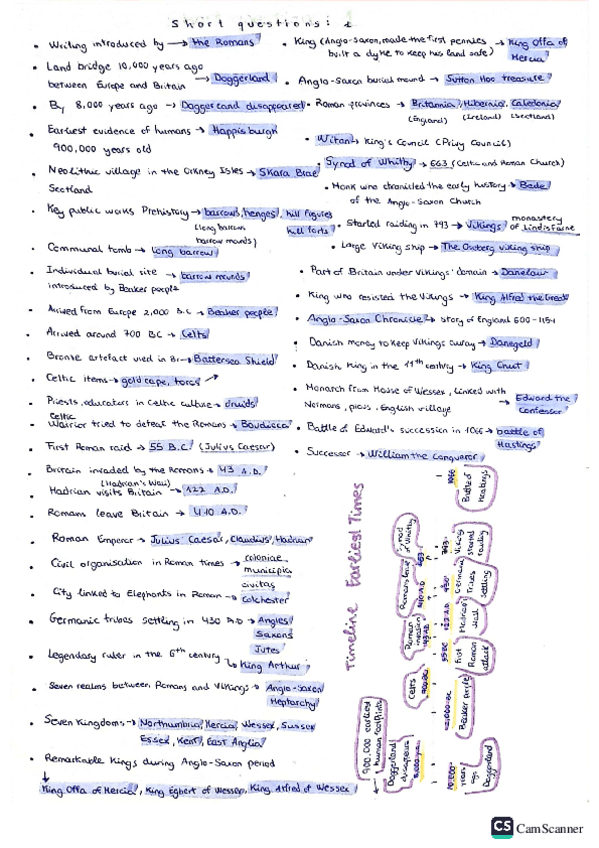 Short questions:
Writing introduced by → the Romans
Land bridge 10,000 years ago
between Europe and Britain → Doggerland
By 8,000 years ago → Doggerland disappeared
Earliest evidence of humans → Happisburgh
900,000 years old
Neolithic village in the Orkney Isles → Skara Brae
Scotland
Key public works Prehistory → barrows, henges, hill figures
(long barrow hill forts
barrow mounds)
Communal tomb → long barrow
Individual burial site → barrow mounds
introduced by Beaker people
Arrived from Europe 2,000 B.C → Beaker people
Arrived around 700 BC → Celts
Bronze artefact used in Br → Battersea Shield
Celtic items → gold cape, torcs
Priests, educators in Celtic culture → druids
Celtic
Warrior tried to defeat the Romans → Boudicca
First Roman raid → 55 B.C. (Julius Caesar)
Britain invaded by the Romans → 43 A.D.
(Hadrian's Wall)
Hadrian visits Britain → 122 A.D.
Romans leave Britain → 410 A.D.
Roman Emperor → Julius Caesar, Claudius, Hadrian
Civil organisation in Roman times → coloniae
municipia
civitas
City linked to Elephants in Roman → Colchester
Germanic tribes settling in 430 A.D → Angles
Saxons
Jutes
Legendary ruler in the 6th century
→ King Arthur
Seven realms between Romans and Vikings → Anglo-Saxon
Heptarchy
Seven Kingdoms → Northumbria, Mercia, Wessex, Sussex
Essex, Kent, East Anglia
Remarkable Kings during Anglo-Saxon period
↓
King Offa of Mercia, King Egbert of Wessex, King Alfred of Wessex
King (Anglo-Saxon, made the first pennies → King Offa of
built a dyke to keep his land safe) Mercia
Anglo-Saxon burial mound → Sutton Hoo treasure
Roman provinces → Britannia, Hibernia, Caledonia
(England) (Ireland) (Scotland)
Witan → King's Council (Privy Council)
Synod of Whitby → 663 (Celtic and Roman Church)
Monk who chronicled the early history → Bede
of the Anglo-Saxon Church
Started raiding in 793 → Vikings monastery
of Lindisfarne
Large Viking ship → The Oseberg viking ship
Part of Britain under Vikings' domain → Danelaw
King who resisted the Vikings → King Alfred the Great
Anglo-Saxon Chronicle → story of England 600-1154
Danish money to keep Vikings away → Danegeld
Danish King in the 11th century → King Cnut
Monarch from House of Wessex, linked with
Normans, pious, English village → Edward the
Confessor
Battle of Edward's succession in 1066 → battle of
Hastings
Successor → William the Conqueror
Timeline Earliest Times
900,000 earliest
human footprints
Doggerland
disappears
8,000 years
10,000
years
ago
Doggerland
Celts
700 BC
2,000 BC
Beaker people
Roman
invasion
43 A.D
55 BC
First
Roman
attack
Romans leave
410 A.D
122 A.D
Hadrian's
Wall
430
Germanic
Tribes
settling
Synod
of Whitby
663
793
Viking
started
raiding
1066
Battle of
Hastings
CS CamScanner